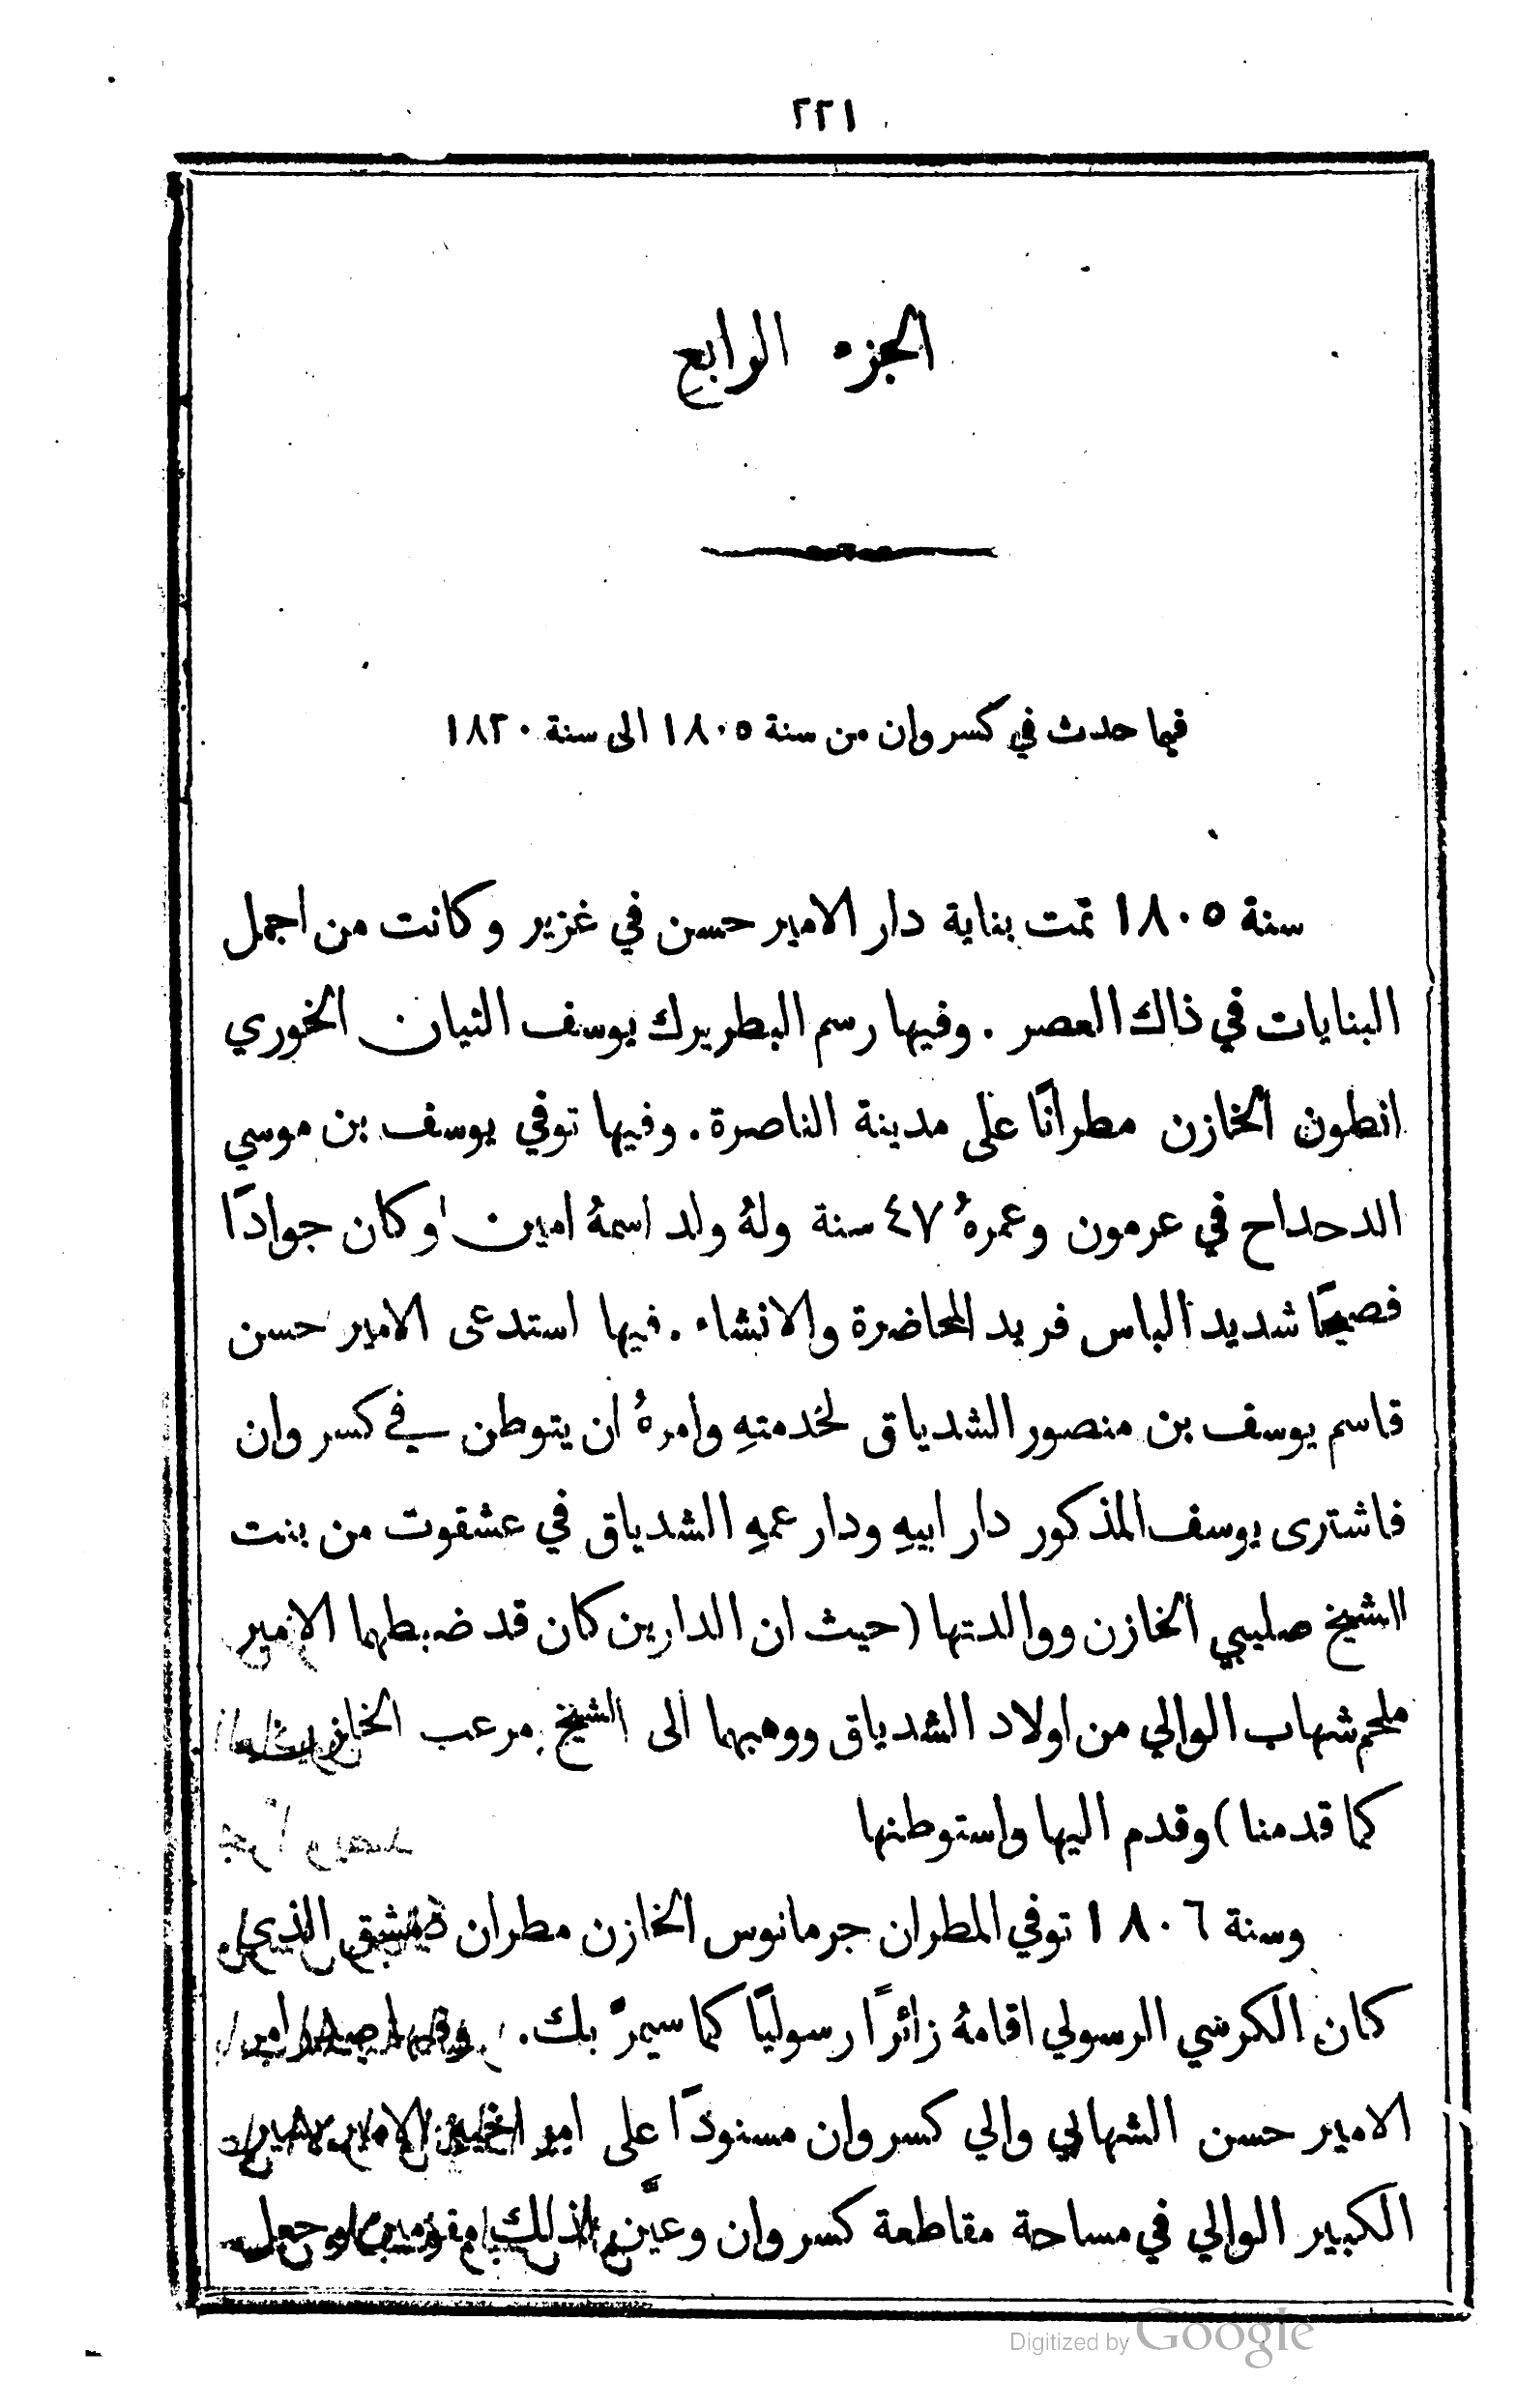 ٢٢١
الجزء الرابع
فيما حدث في كسروان من سنة ١٨٠٥ الى سنة ١٨٢٠
سنة ١٨٠٥ تمت بناية دار الامير حسن في غزير وكانت من اجمل
البنايات في ذاك العصر . وفيها رسم البطريرك يوسف التيان الخوري
انطون الخازن مطرانًا على مدينة الناصرة . وفيها توفي يوسف بن موسي
الدحداح في عرمون وعمرهُ ٤٧ سنة ولهُ ولد اسمهُ امين وكان جوادًا
فصيحًا شديد الباس فريد المحاضرة والانشاء . فيها استدعى الامير حسن
قاسم يوسف بن منصور الشدياق لخدمتهِ وامرهُ ان يتوطن في كسروان
فاشترى يوسف المذكور دار ابيهِ ودار عمهِ الشدياق في عشقوت من بنت
الشيخ صليبي الخازن ووالدتها (حيث ان الدارين كان قد ضبطهما الامير
ملحم شهاب الوالي من اولاد الشدياق ووهبهما الى الشيخ مرعب الخازن
كما قدمنا) وقدم اليها واستوطنها
وسنة ١٨٠٦ توفي المطران جرمانوس الخازن مطران دمشق الذي
كان الكرسي الرسولي اقامهُ زائرًا رسوليًا كما سيمرّ بك . وفيها صدر امر
الامير حسن الشهابي والي كسروان مسنودًا على امر اخيه الامير بشير
الكبير الوالي في مساحة مقاطعة كسروان وعيَّن لذلك مقومين وجعل
Digitized by Google